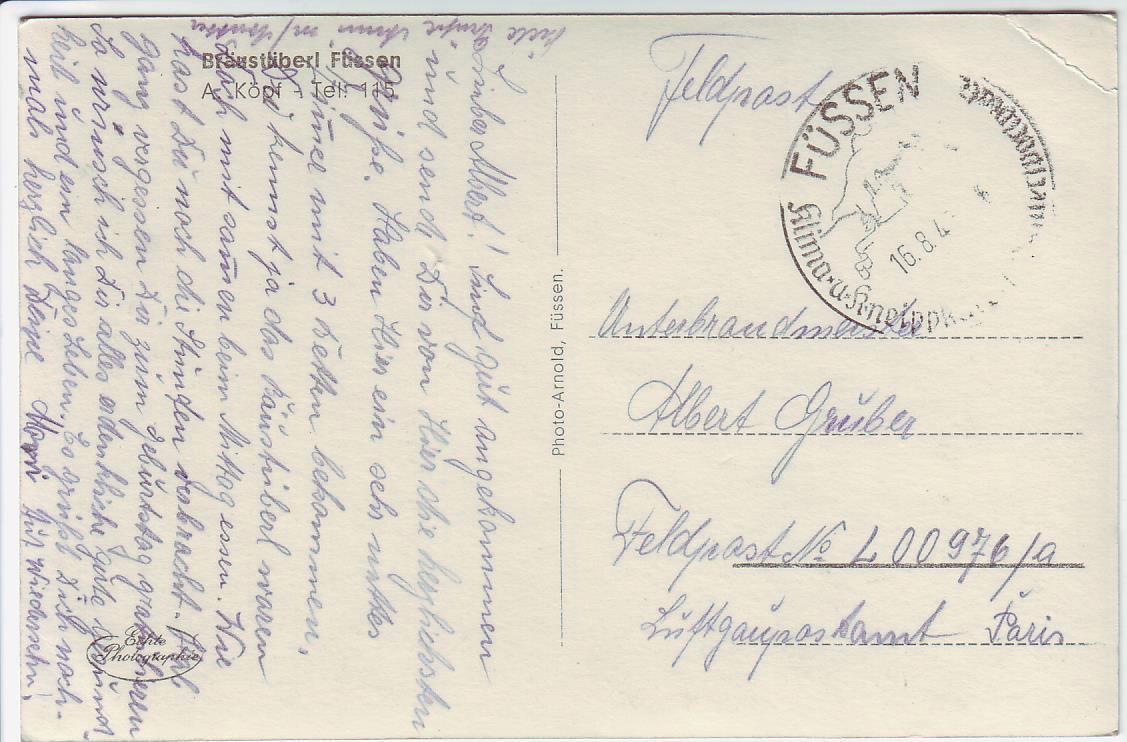 Bräustüberl Füssen
A. Kopf - Tel. 115
Lieber Albert! Sind gut angekommen
und send Dir von Hier die herzlichsten
Grüße. Haben Hier ein sehr nettes
Zimmer mit 3 Betten bekommen,
Du kennst ja das Bräustüberl waren
doch mit beim Mittag essen. Wie
hast Du noch die Stunden verbracht.
Ganz vergessen Dir zum Geburtstag gratulieren
So wünsch ich Dir alles erdenkliche gute Gesund-
heit und ein langes Leben, Es grüßt Dich noch-
mals herzlich Deine Auf Wiedersehn!
Viele Grüße
Echte
Photographie
Photo-Arnold, Füssen.
Feldpost
FÜSSEN
Klima-u-Kneippkur
16.8.4
Unterbrandmeister
Albert Gruber
Feldpost No L 00976/a
Luftgaupostamt Paris